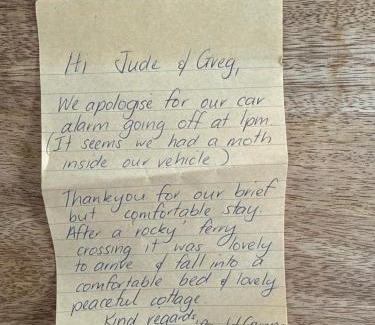 Hi Jude & Greg,
We apologise for our car
alarm going off at 1pm
(It seems we had a moth
inside our vehicle)
Thankyou for our brief
but comfortable stay.
After a 'rocky' ferry
crossing it was lovely
to arrive & fall into a
comfortable bed & lovely
peaceful cottage
Kind regards,